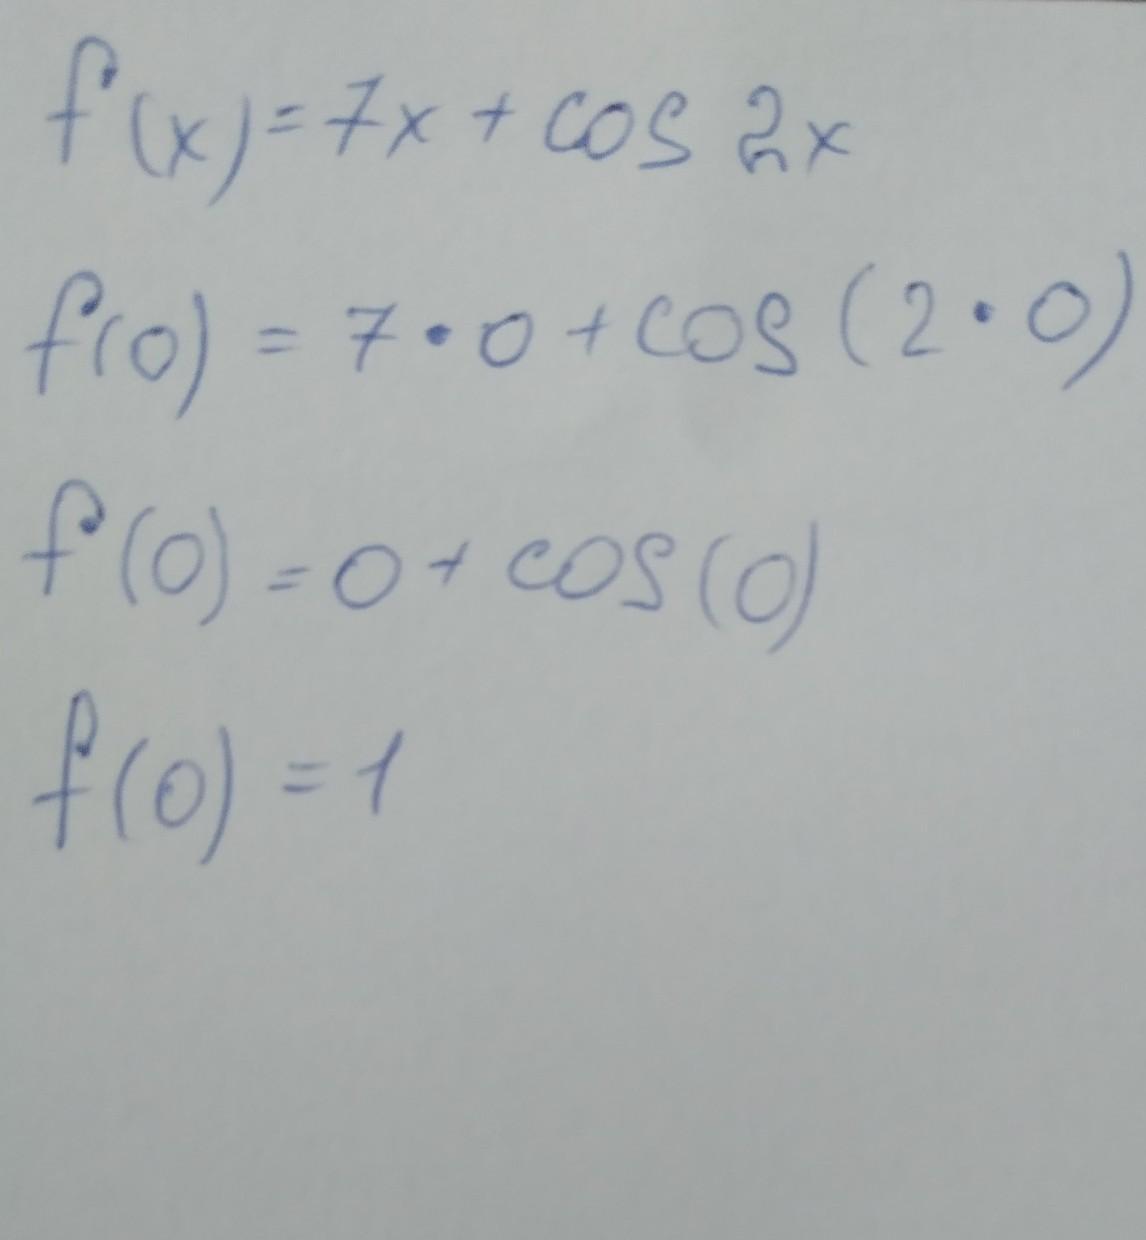 f(x)=7x+cos 2x
f(0) = 7•0+cos(2•0)
f(0)=0+cos(0)
f(0)=1